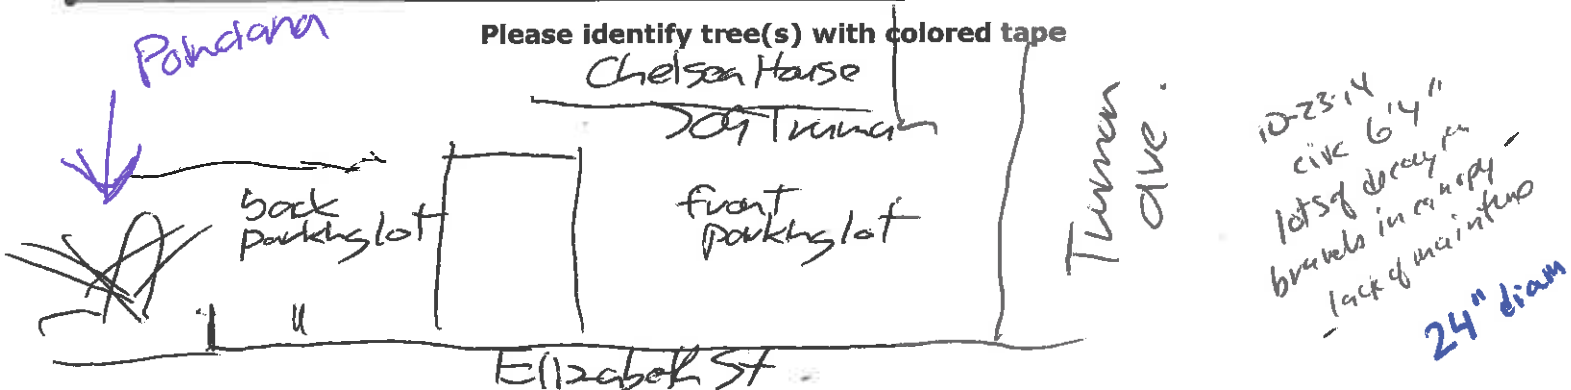 Please identify tree(s) with colored tape
Poinciana
Chelsea House
709 Truman
back
parking lot
front
parking lot
Truman
ave.
Elizabeth St
10-23-14
circ 6'4"
lots of decay in
branchs in canopy -
- lack of maintenc
24" diam